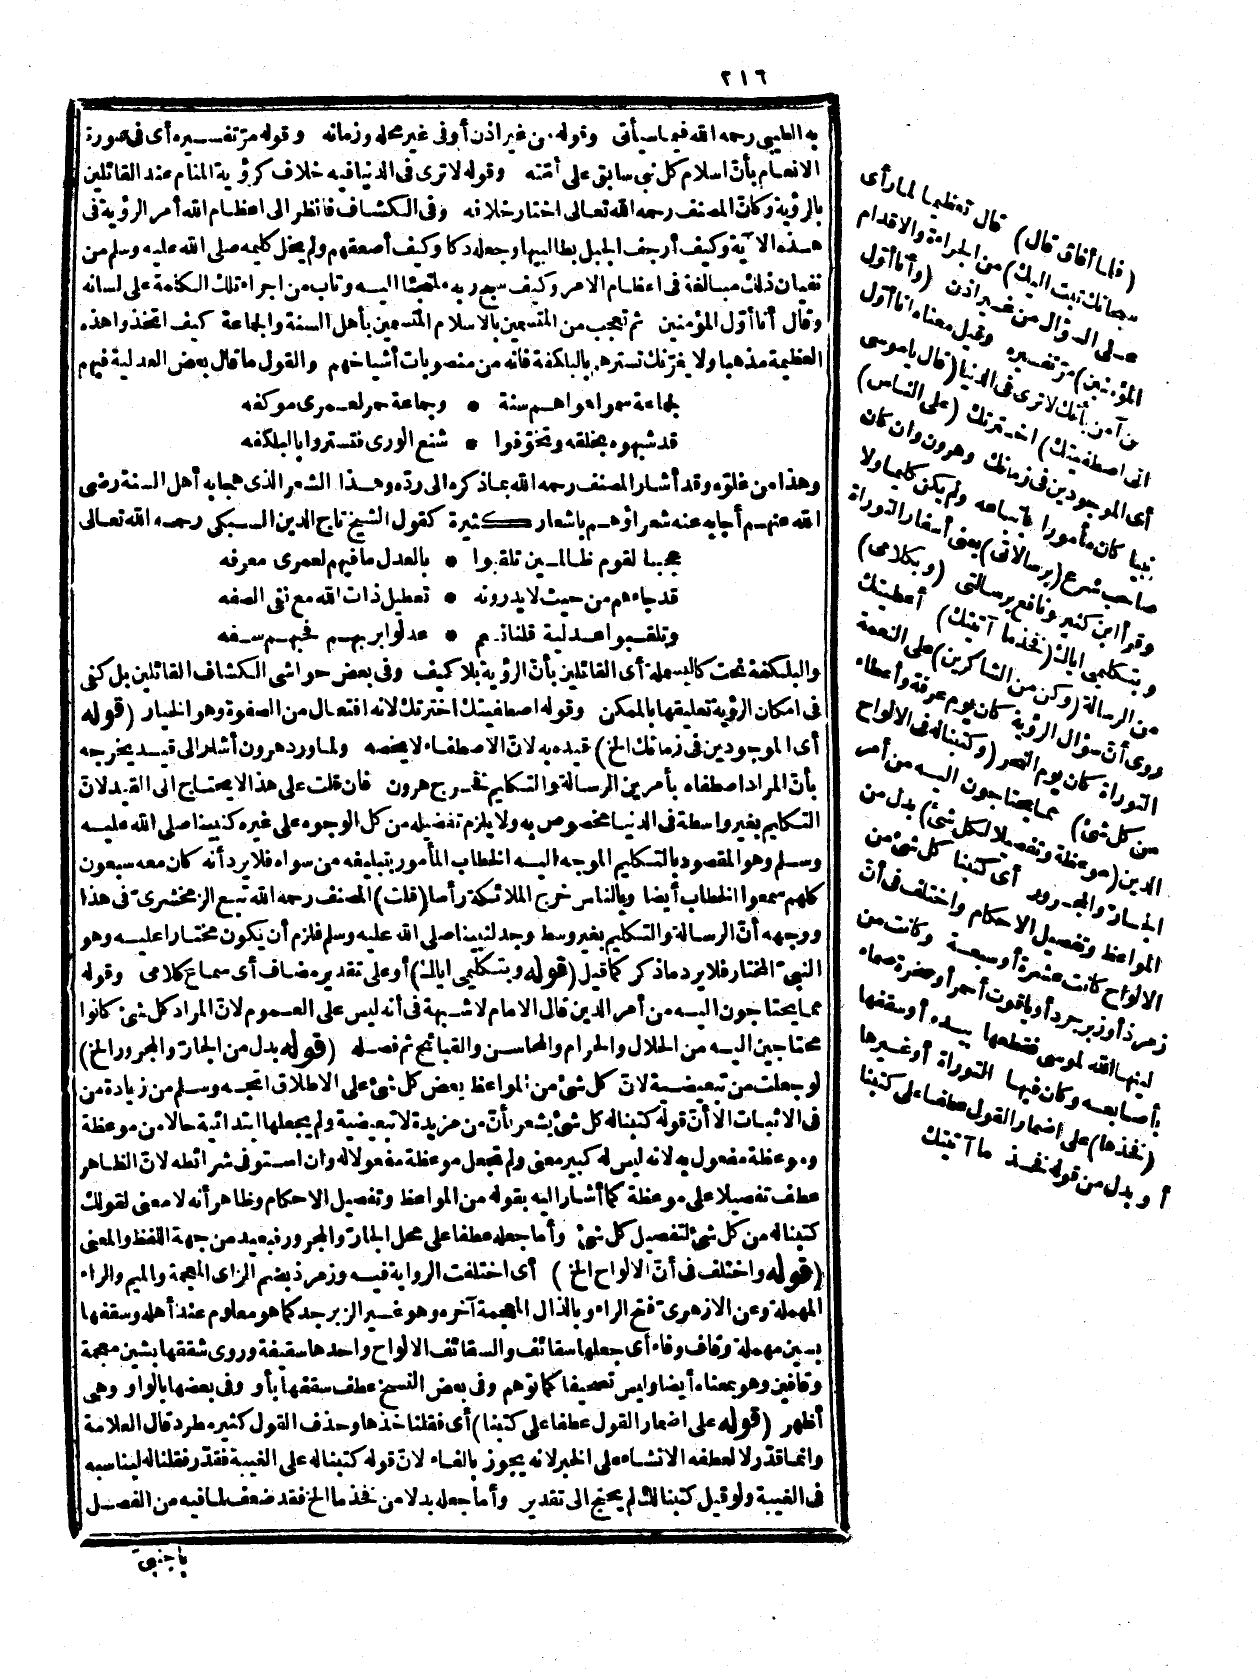 ٢١٦
به الطيبى رحمه الله فيما سيأتى وقوله من غير اذن أو فى غير محله وزمانه وقوله مرّ تفسيره أى فى صورة
الانعام بأنّ اسلام كل نبى سابق على أمّته وقوله لا ترى فى الدنيا فيه خلاف كرؤية المنام عند القائلين
بالرؤية وكانّ المصنف رحمه الله تعالى اختار خلافه وفى الكشاف فانظر الى اعظام الله أمر الرؤية فى
هذه الآية وكيف أرجف الجبل بطالبيها وجعله دكا وكيف أصعقهم ولم يخل كليمه صلى الله عليه وسلم من
نفيان ذلك مبالغة فى اعظام الامر وكيف سبح ربه ملتجئا اليه وتاب من اجراء تلك الكلمة على لسانه
وقال أنا أوّل المؤمنين ثم تعجب من المتسمين بالاسلام المتسمين بأهل السنة والجماعة كيف اتخذوا هذه
العظيمة مذهبا ولا يغرّنك تسترهم بالبلكفة فانه من منصوبات أشياخهم والقول ما قال بعض العدلية فيهم
لجماعة سموا هواهم سنة • وجماعة حمر لعمرى موكفه
قد شبهوه بخلقه وتخوّفوا • شنع الورى فتستروا بالبلكفه
وهذا من غلوّه وقد أشار المصنف رحمه الله بما ذكره الى ردّه وهذا الشعر الذى هجا به أهل السنة رضى
الله عنهم أجابه عنه شعراؤهم باشعار كثيرة كقول الشيخ تاج الدين السبكى رحمه الله تعالى
عجبا لقوم ظالمين تلقبوا • بالعدل ما فيهم لعمرى معرفه
قد جاءهم من حيث لا يدرونه • تعطيل ذات الله مع نفى الصفه
وتلقبوا عدلية قلنا نعم • عدلوا بربهم فحسبهم سفه
والبلكفة نحت كالبسملة أى القائلين بأنّ الرؤية بلا كيف وفى بعض حواشى الكشاف القائلين بل كفى
فى امكان الرؤية تعليقها بالممكن وقوله اصطفيتك اخترتك لانه افتعال من الصفوة وهو الخيار (قوله
أى الموجودين فى زمانك الخ) قيده به لانّ الاصطفاء لا يخصه ولما ورد هرون أشار الى قيد يخرجه
بأنّ المراد اصطفاه بأمرين الرسالة والتكليم فخرج هرون فان قلت على هذا لا يحتاج الى القيد لانّ
التكليم بغير واسطة فى الدنيا مخصوص به ولا يلزم تفضيله من كل الوجوه على غيره كنبينا صلى الله عليه
وسلم وهو المقصود بالتكليم الموجه اليه الخطاب المأمور بتبليغه من سواه فلا يرد أنه كان معه سبعون
كلهم سمعوا الخطاب أيضا وبالناس خرج الملائكة رأسا (قلت) المصنف رحمه الله تبع الزمخشرىّ فى هذا
ووجهه أنّ الرسالة والتكليم بغير وسط وجد لنبينا صلى الله عليه وسلم فلزم أن يكون مختارا عليه وهو
النبىّ المختار فلا يرد ما ذكر كما قيل (قوله وبتكليمى اياك) أو على تقدير مضاف أى سماع كلامى وقوله
مما يحتاجون اليه من أمر الدين قال الامام لا شبهة فى أنه ليس على العموم لانّ المراد كل شئ كانوا
محتاجين اليه من الحلال والحرام والمحاسن والقبائح ثم فصله (قوله بدل من الجارّ والمجرور الخ)
لو جعلت من تبعيضية لانّ كل شئ من المواعظ بعض كل شئ على الاطلاق اتجه وسلم من زيادة من
فى الاثبات الا أنّ قوله كتبنا له كل شئ يشعر بأنّ من مزيدة لا تبعيضية ولم يجعلها ابتدائية حالا من موعظة
وموعظة مفعول به لانه ليس له كبير معنى ولم تجعل موعظة مفعولا له وان استوفى شرائطه لانّ الظاهر
عطف تفصيلا على موعظة كما أشار اليه بقوله من المواعظ وتفصيل الاحكام وظاهر أنه لا معنى لقولك
كتبنا له من كل شئ لتفصيل كل شئ وأما جعله عطفا على محل الجارّ والمجرور فبعيد من جهة اللفظ والمعنى
(قوله واختلف فى أنّ الالواح الخ) أى اختلفت الرواية فيه وزمرذ بضم الزاى المعجمة والميم والراء
المهملة وعن الازهرىّ فتح الراء وبالذال المعجمة آخره وهو غير الزبرجد كما هو معلوم عند أهله وسقفها
بسين مهملة وقاف وفاء أى جعلها سقائف والسقائف الالواح واحدها سقيفة وروى شققها بشين معجمة
وقافين وهو بمعناه أيضا وليس تصحيفا كما توهم وفى بعض النسخ عطف سقفها بأو وفى بعضها بالواو وهى
أظهر (قوله على اضمار القول عطفا على كتبنا) أى فقلنا خذها وحذف القول كثير مطرد قال العلامة
وانما قدّر لا لعطفه الانشاء على الخبر لانه يجوز بالفاء لانّ قوله كتبنا له على الغيبة فقدّر فقلنا له ليناسبه
فى الغيبة ولو قيل كتبنا لك لم يحتج الى تقدير وأما جعله بدلا من فخذ ما الخ فقد ضعف لما فيه من الفصل
باجنبىّ
(فلما أفاق قال) قال تعظيما لما رأى
سبحانك تبت اليك) من الجراءة والاقدام
على السؤال من غير اذن (وأنا أوّل
المؤمنين) مرّ تفسيره وقيل معناه أنا أوّل
من آمن بأنك لا ترى فى الدنيا (قال ياموسى
انى اصطفيتك) اخترتك (على الناس)
أى الموجودين فى زمانك وهرون وان كان
نبيا كان مأمورا باتباعه ولم يكن كليما ولا
صاحب شرع (برسالاتى) يعنى أسفار التوراة
وقرأ ابن كثير ونافع برسالتى (وبكلامى)
وبتكليمى اياك (فخذ ما آتيتك) أعطيتك
من الرسالة (وكن من الشاكرين) على النعمة
روى أنّ سؤال الرؤية كان يوم عرفة وأعطاء
التوراة كان يوم النحر (وكتبنا له فى الالواح
من كل شئ) مما يحتاجون اليه من أمر
الدين (موعظة وتفصيلا لكل شئ) بدل من
الجارّ والمجرور أى كتبنا كل شئ من
المواعظ وتفصيل الاحكام واختلف فى أنّ
الالواح كانت عشرة أو سبعة وكانت من
زمرذ أو زبرجد أو ياقوت أحمر أو صخرة صماء
لينها الله لموسى فقطعها بيده أو سقفها
بأصابعه وكان فيها التوراة أو غيرها
(فخذها) على اضمار القول عطفا على كتبنا
أو بدل من قوله فخذ ما آتيتك